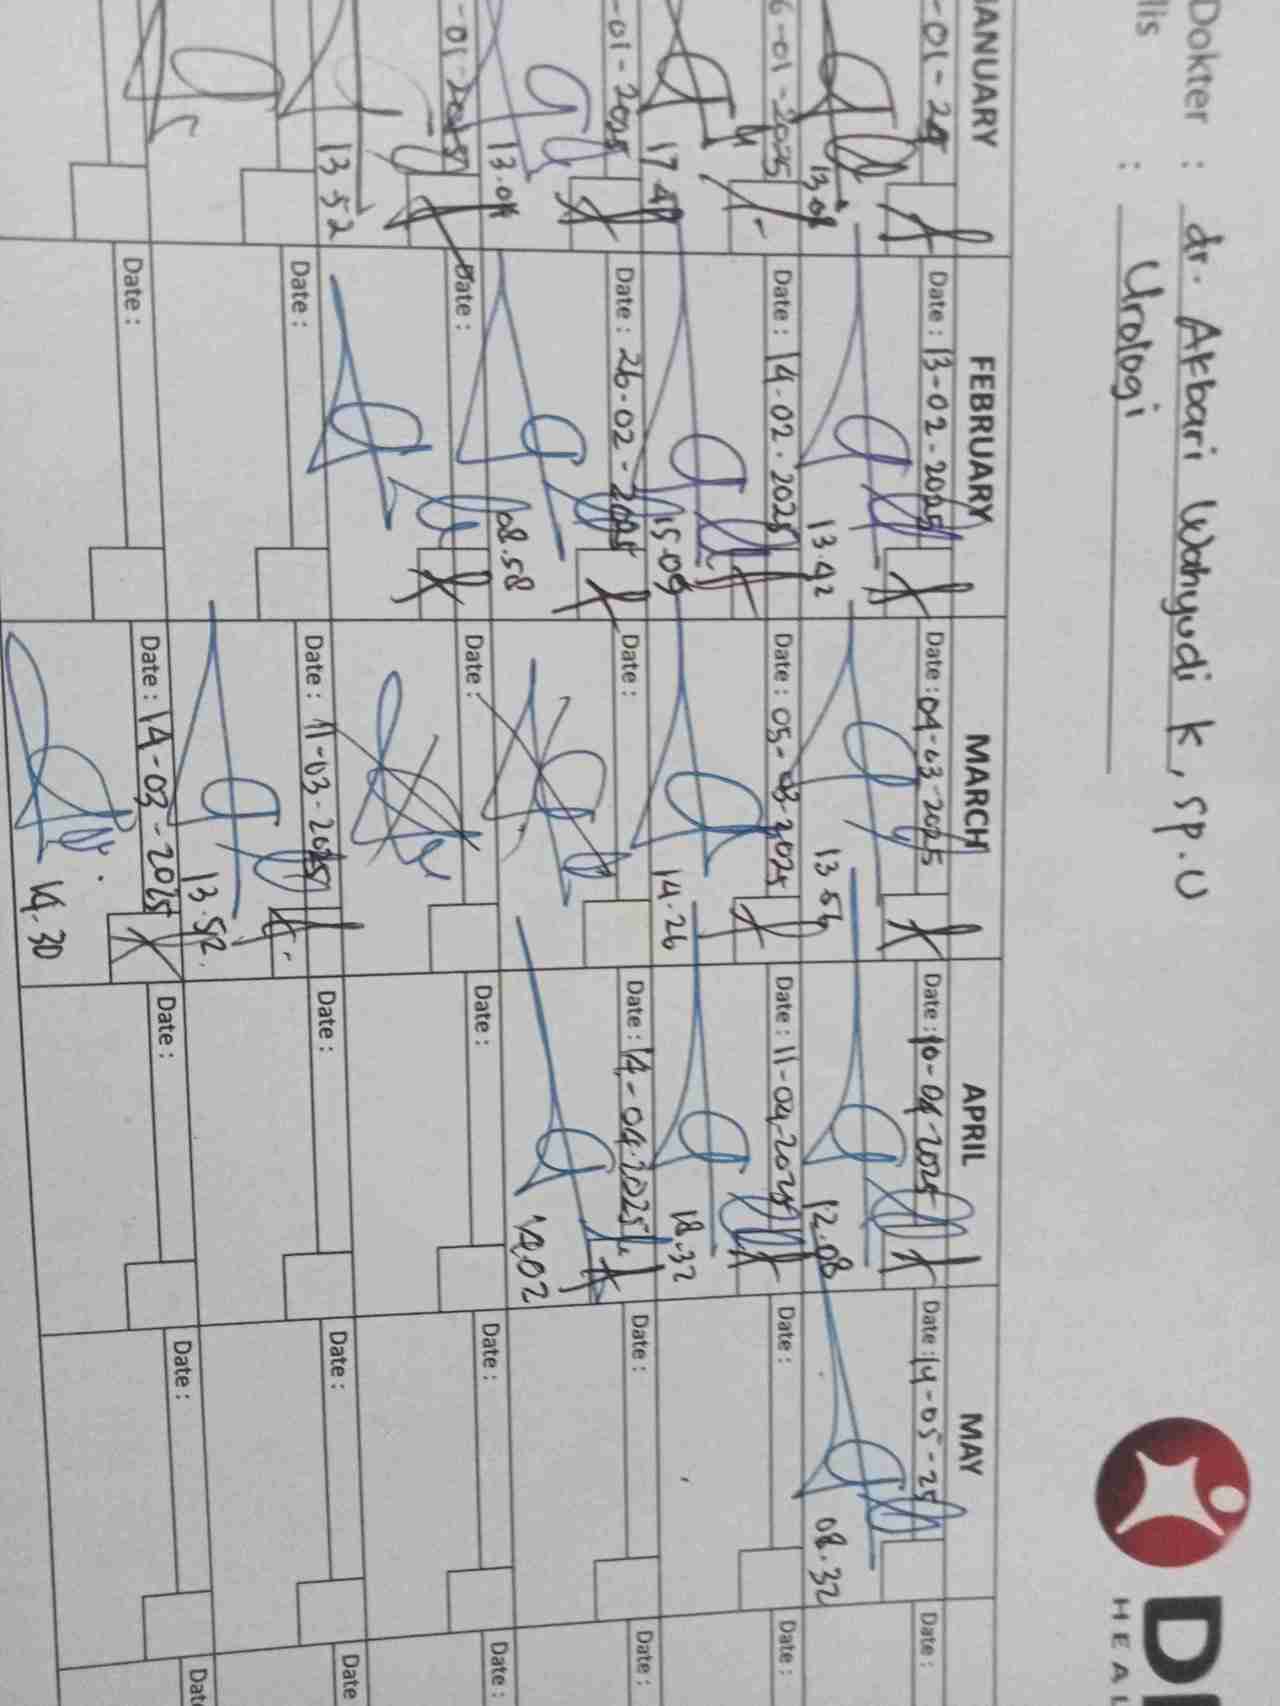 Dokter : dr. Akbari Wahyudi K, Sp.U
lis : Urologi
D
HEAL
ANUARY FEBRUARY MARCH APRIL MAY
-01-24 Date : 13-02-2025 Date : 04-03-2025 Date : 10-04-2025 Date : 14-05-25 Date :
13.08 13.42 13.56 12.08 08.32
6-01-2025 Date : 14.02.2025 Date : 05-03-2025 Date : 11-04-2025 Date : Date :
15.09 14.26 18.32
-01-2025 Date : 26-02-2025 Date : Date : 14-04-2025 Date : Date :
13.04 08.58 14.02
-01-2025 Date : Date : Date : Date : Date :
13.52
Date : Date : 11-03-2025 Date : Date : Date
13.52.
Date : Date : 14-03-2025 Date : Date : Date
14.30